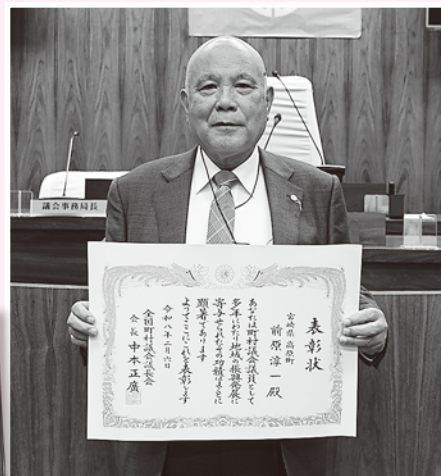 議会事務局長
表彰状
宮崎県 高原町
前原淳一殿
あなたは町村議会議員として
多年にわたり地域の振興発展に
寄与せられたその功績はまことに
顕著であります
よってここにこれを表彰します
令和八年二月六日
全国町村議会議長会
会長 中本正廣